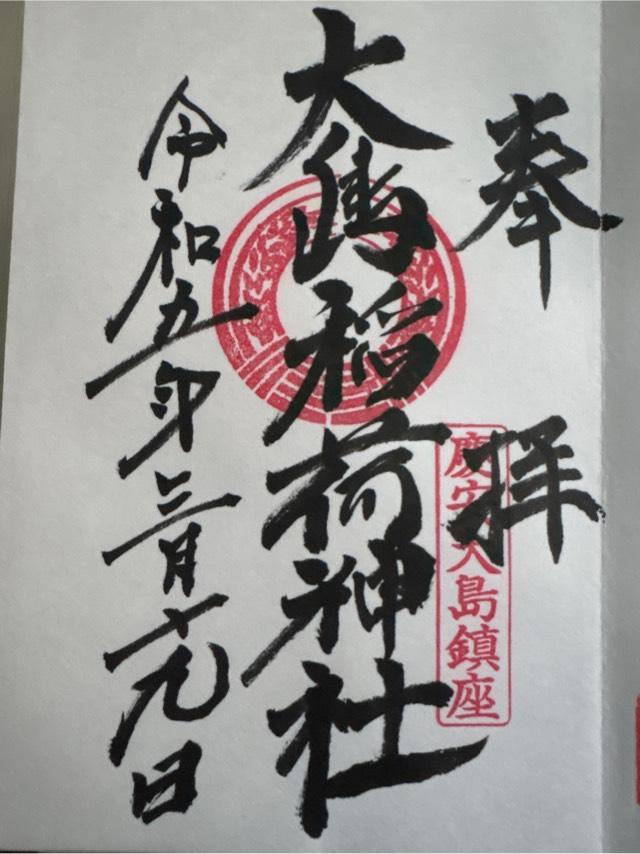 奉拝
慶安 大島鎮座
大嶋稲荷神社
令和五年三月十九日